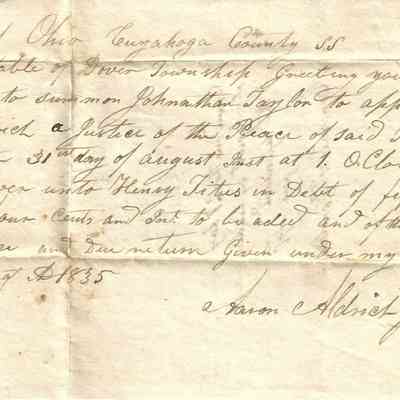 Ohio Cuyahoga County SS
table of Dover Township Greeting you
to summon Johnathan Taylor to app
ich a Justice of the Peace of said
31st day of august Inst at 1. O,Clo
unto Henry Titus in Debt of fi
our Cents and Int. to be aded and of th
and Due return Given under my
A 1835
Aaron Aldrich